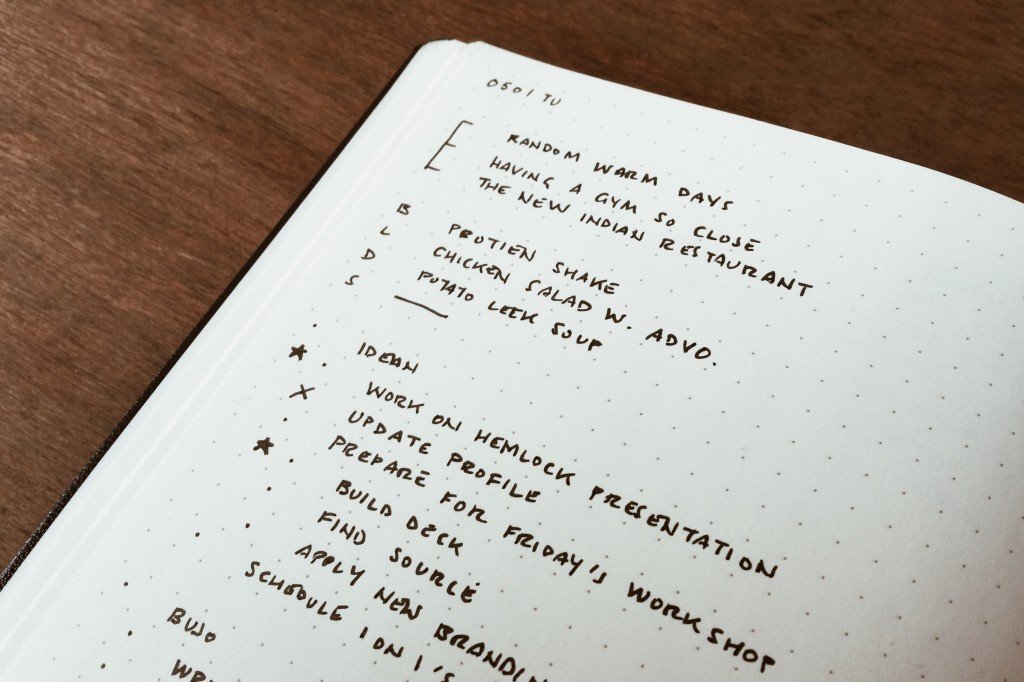 0501 TU
RANDOM WARM DAYS
HAVING A GYM SO CLOSE
THE NEW INDIAN RESTAURANT
B PROTIEN SHAKE
L CHICKEN SALAD W. ADVO.
D POTATO LEEK SOUP
S —
· IDEAN
★ · WORK ON HEMLOCK PRESENTATION
× UPDATE PROFILE
★ · PREPARE FOR FRIDAY'S WORKSHOP
· BUILD DECK
· FIND SOURCE
· APPLY NEW BRANDIN
· SCHEDULE 1 ON 1'S
· BUJO